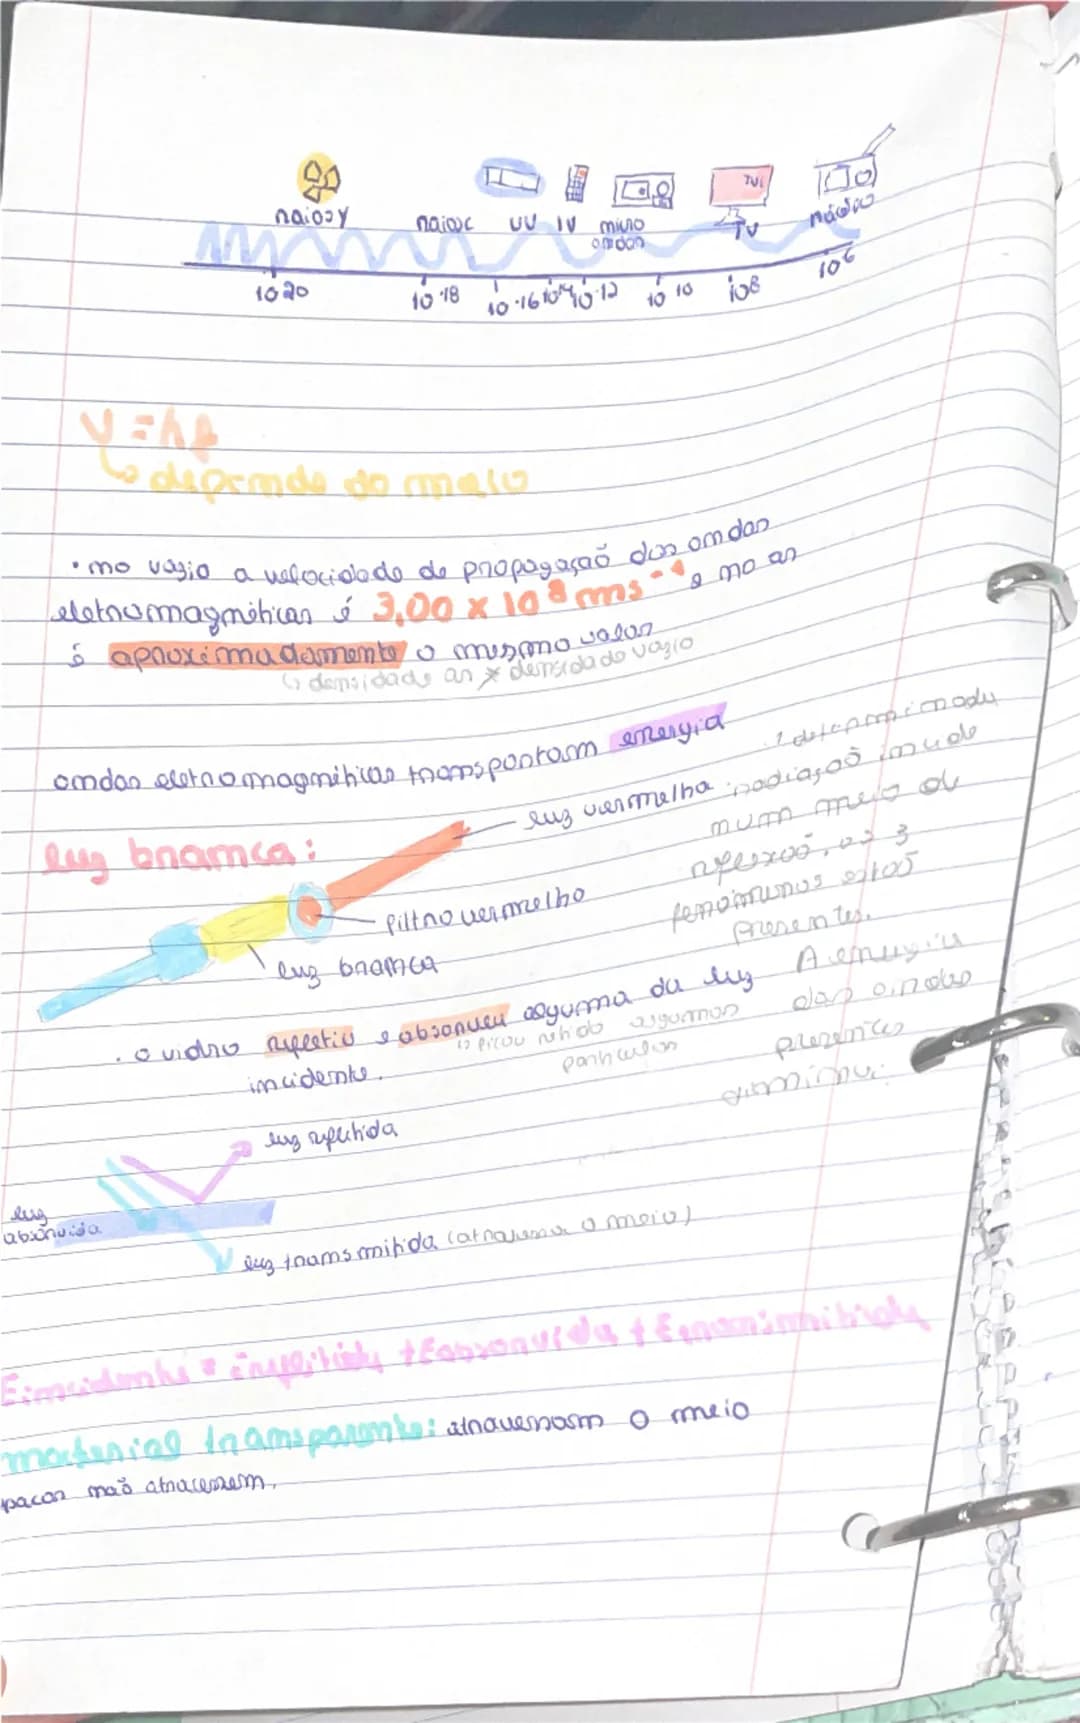 raios γ raios x UV IV micro TV rádio
ondas
10 20 10 18 10 16 10 14 10 12 10 10 10 8 10 6
v = λ f
↳ depende do meio
• no vazio a velocidade de propagação das ondas
eletromagnéticas é 3,00 x 10 8 ms -1 e no ar
é aproximadamente o mesmo valor
↳ densidade ar ≠ densidade vazio
ondas eletromagnéticas transportam energia
luz branca:
luz vermelha
filtro vermelho
luz branca
: determinada
radiação incide
num meio de
reflexão, os 3
fenómenos estão
presentes.
A energia
das ondas
presentes
diminui.
. o vidro refletiu e absorveu alguma da luz
↳ ficou retido algumas
partículas
incidente.
luz refletida
luz
absorvida
luz transmitida (atravessa o meio)
Eincidente = Erefletida + Eabsorvida + Etransmitida
material transparente: atravessam o meio
pacos não atravessem.